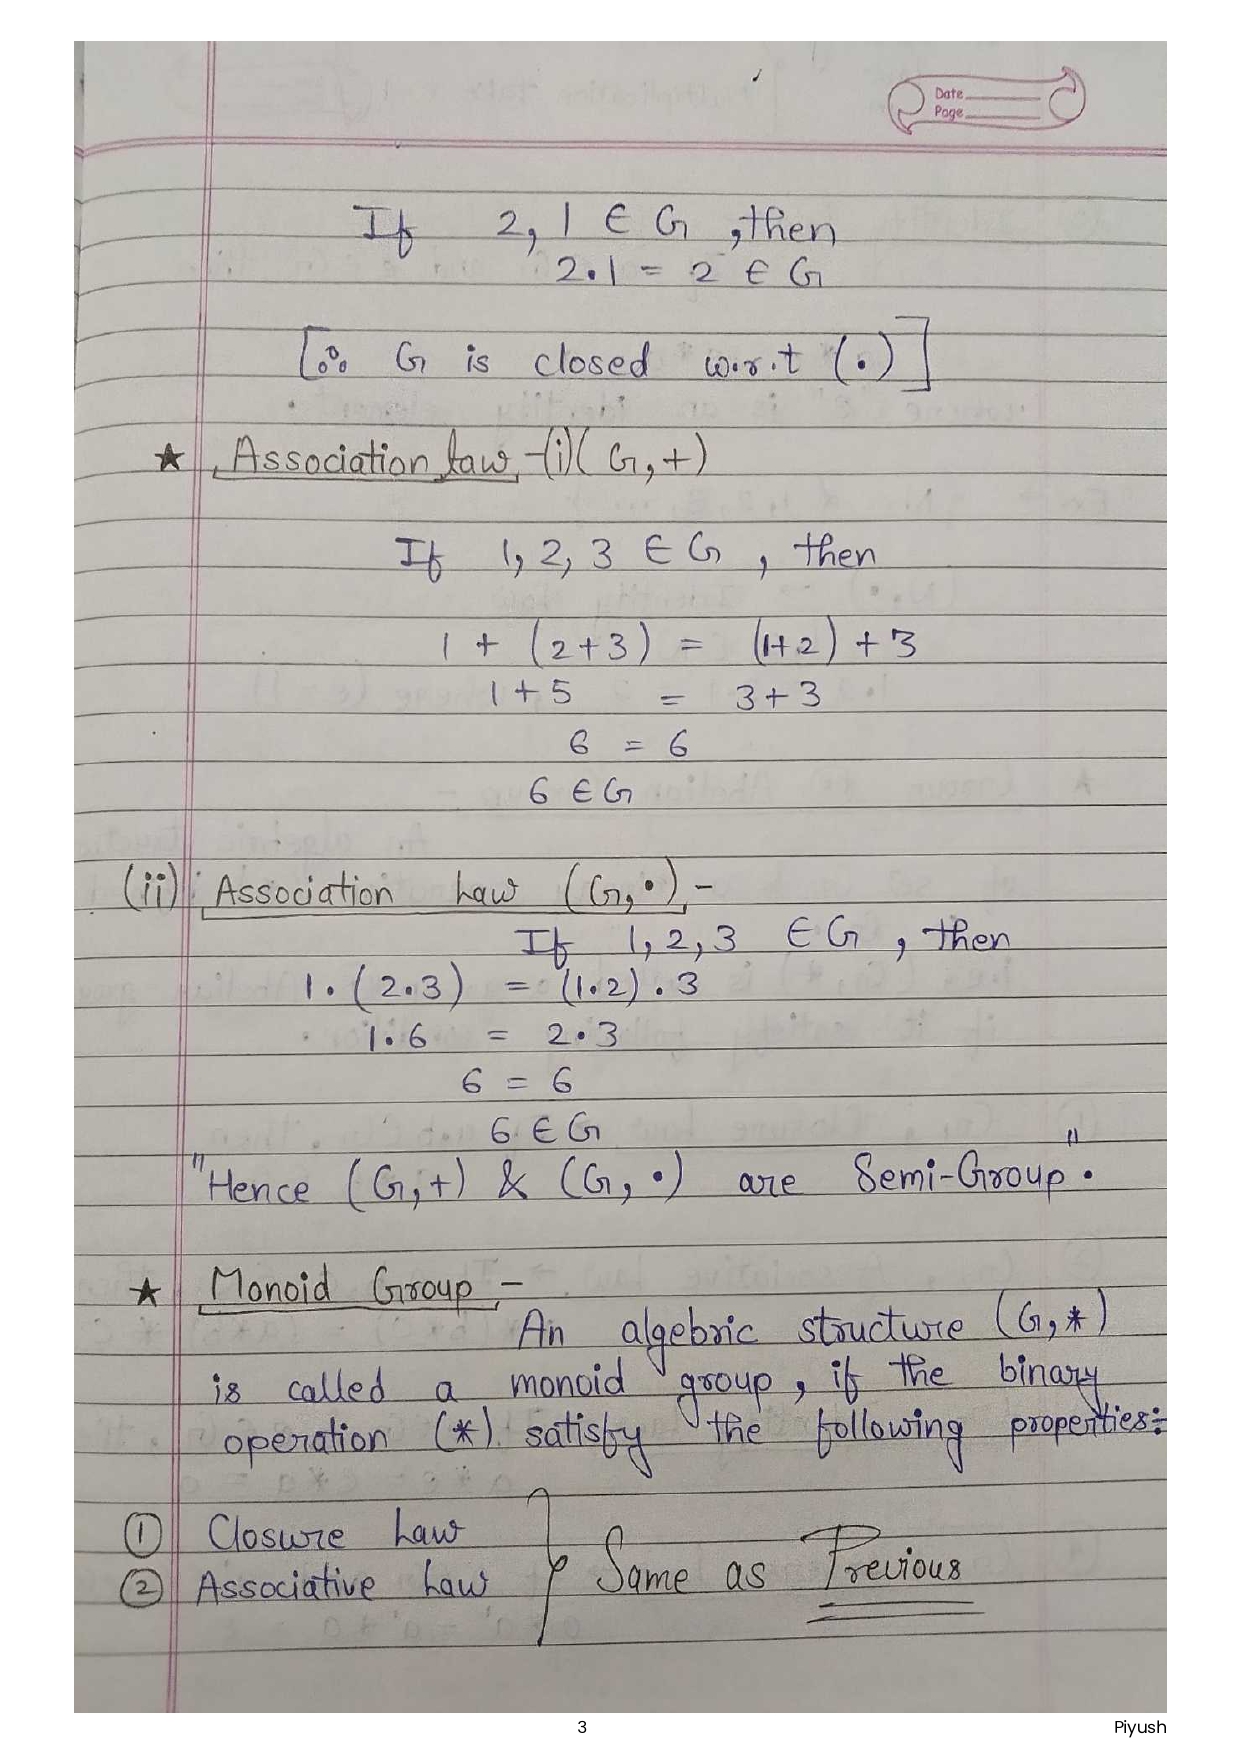 Date
Page
If 2, 1 ∈ G, then
2.1 = 2 ∈ G
[∴ G is closed w.r.t (.)]
★ Association Law -(i)(G,+)
If 1, 2, 3 ∈ G, then
1 + (2+3) = (1+2) + 3
1+5 = 3+3
6 = 6
6 ∈ G
(ii) Association Law (G,•) -
If 1, 2, 3 ∈ G, then
1.(2.3) = (1.2).3
1.6 = 2.3
6 = 6
6 ∈ G
"Hence (G,+) & (G, •) are Semi-Group".
★ Monoid Group -
An algebric structure (G,*)
is called a monoid group, if the binary
operation (*) satisfy the following properties:-
① Closure Law
② Associative Law } Same as Previous
3 Piyush